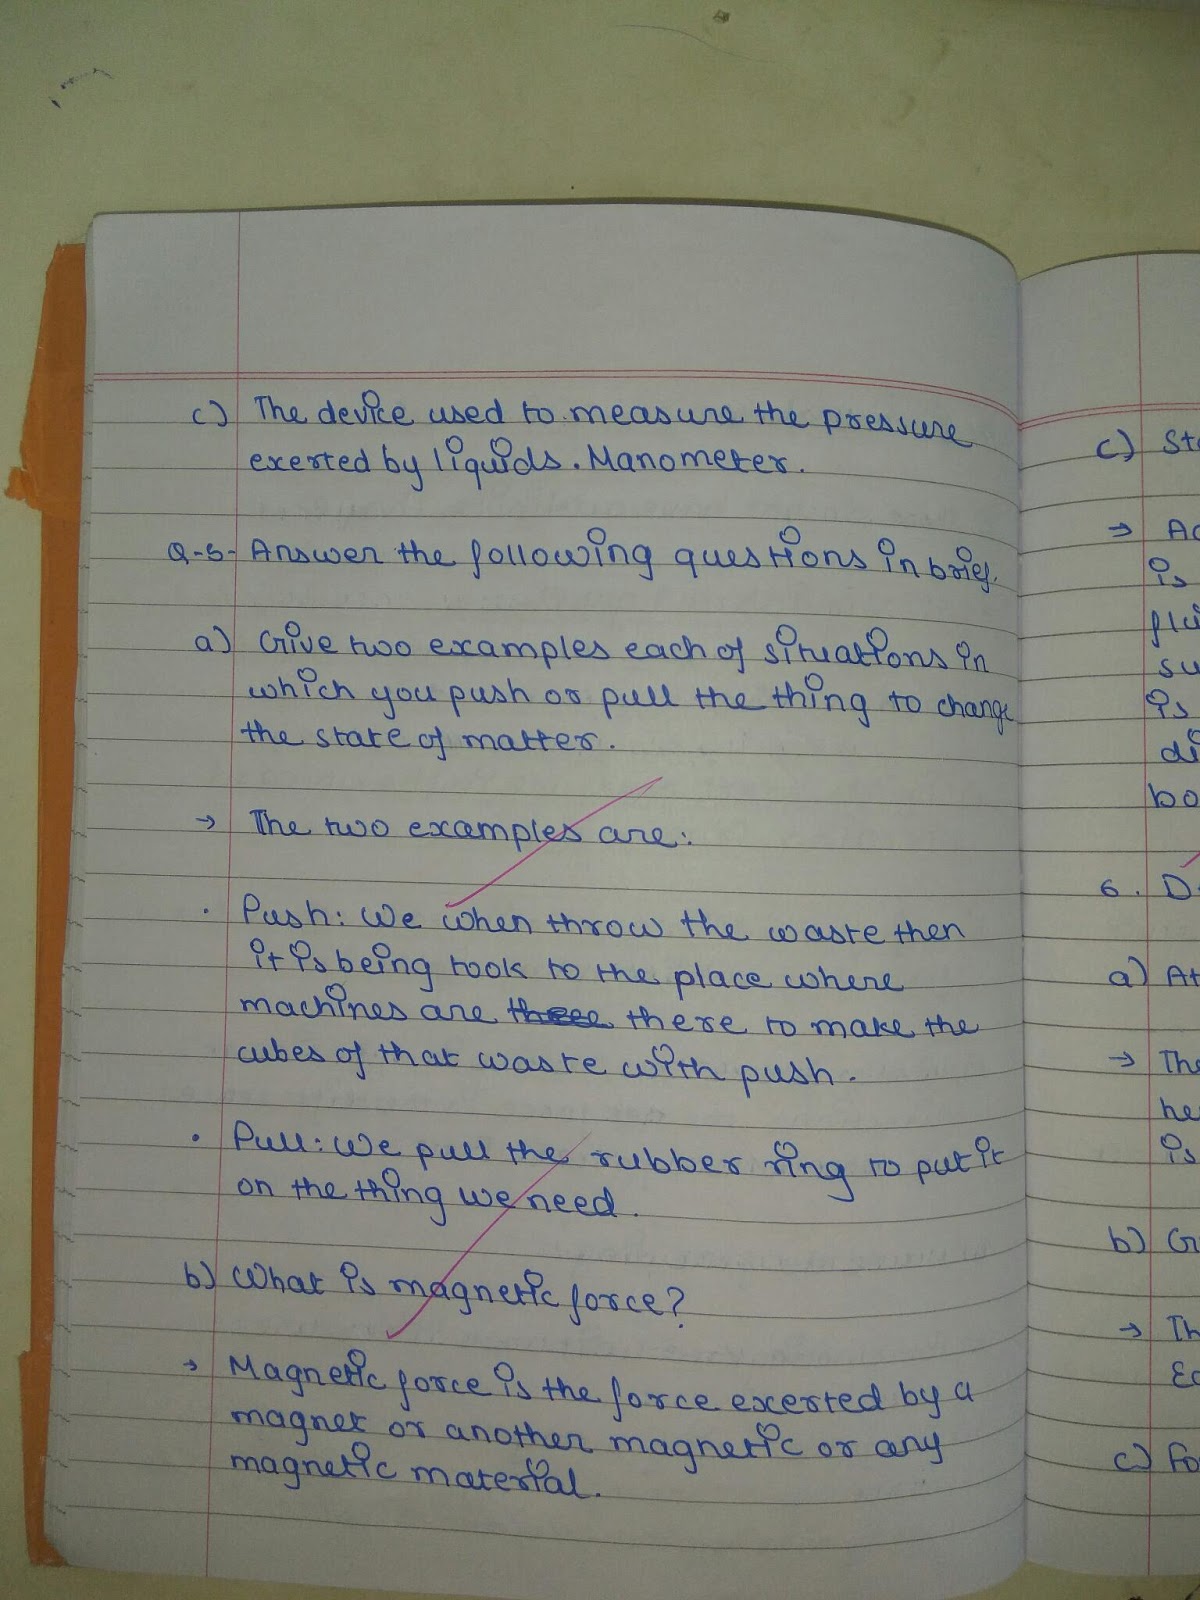 c) The device used to measure the pressure
exerted by liquids. Manometer.
Q-5- Answer the following questions in brief.
a) Give two examples each of situations in
which you push or pull the thing to change
the state of matter.
→ The two examples are:
· Push: We when throw the waste then
it is being took to the place where
machines are there to make the
cubes of that waste with push.
· Pull: We pull the rubber ring to put it
on the thing we need.
b) What is magnetic force?
→ Magnetic force is the force exerted by a
magnet or another magnetic or any
magnetic material.
c)
→
is
6.
a)
→
is
b)
→
c)